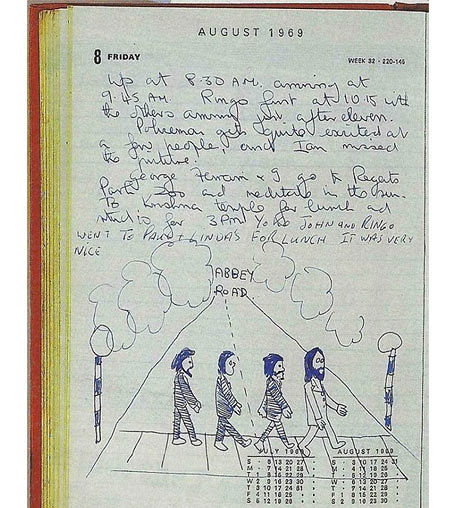 AUGUST 1969
8 FRIDAY
WEEK 32 · 220-145
Up at 8.30 AM. arriving at
9.45 AM. Ringo first at 10.15 with
the others arriving just after eleven.
Policeman gets quite excited at
a few people, and Iain missed
the picture.
George + I go to Regents
Park Zoo and meditate in the sun.
To Krishna temple for lunch and
studio for 3 PM. YOKO JOHN AND RINGO
WENT TO PAUL + LINDAS FOR LUNCH IT WAS VERY
NICE
ABBEY
ROAD
JULY 1969
S · 6 13 20 27
M · 7 14 21 28
T 1 8 15 22 29
W 2 9 16 23 30
T 3 10 17 24 31
F 4 11 18 25
S 5 12 19 26
AUGUST 1969
S 3 10 17 24 31
M 4 11 18 25
T 12 19 26
W 13 20 27
T 14 21 28
F 1 8 15 22 29
S 2 9 16 23 30